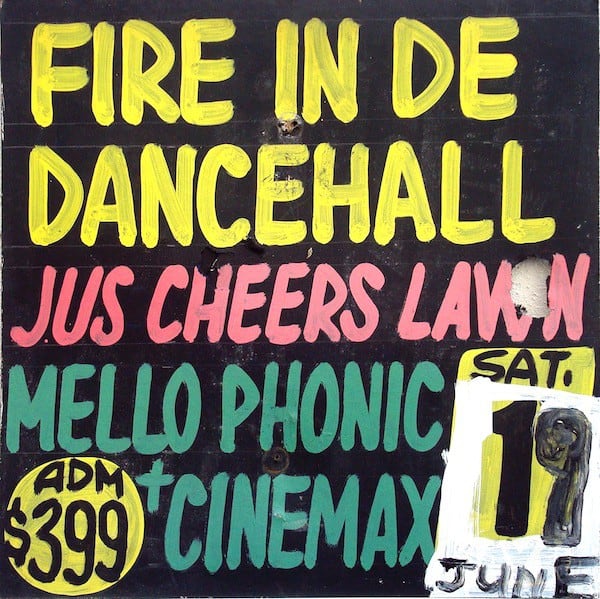 FIRE IN DE
DANCEHALL
JUS CHEERS LAWN
MELLO PHONIC
+ CINEMAX
ADM
$399
SAT.
19
JUNE